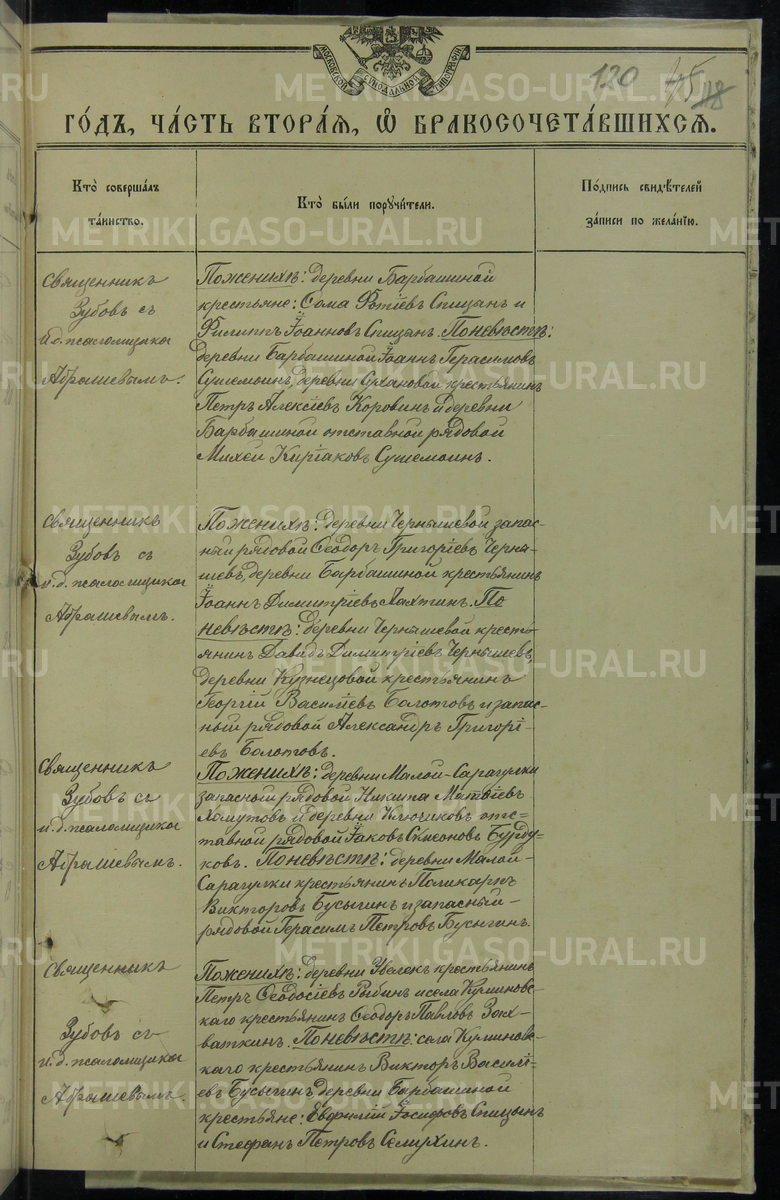 МОСКОВСКОЙ СѴНОДАЛЬНОЙ ТИПОГРАФІИ
120
118
ГО́ДЪ, ЧА́СТЬ ВТОРА́Я, Ѽ БРАКОСОЧЕТА́ВШИХСѦ.
Кто̀ соверша́лъ та́инство.
Кто̀ бы́ли поручи́тели.
По́дпись свидѣ́телей за́писи по жела́нію.
Священникъ
Зубовъ съ
и.д. псаломщика
Абрашевымъ.
По женихѣ: деревни Барбашиной
крестьяне: Ѳома Фотіевъ Спицын и
Филиппъ Іоанновъ Спицын. По невѣстѣ:
деревни Барбашиной Іоаннъ Герасимовъ
деревни Сухановой крестьянинъ
Петръ Алексіевъ Коровинъ и деревни
Барбашиной отставной рядовой
Михей Киріаковъ
Священникъ
Зубовъ съ
и.д. псаломщика
Абрашевымъ.
По женихѣ: деревни Чернышевой запас-
ный рядовой Ѳеодоръ Григоріевъ Черны-
шевъ, деревни Барбашиной крестьянинъ
Іоаннъ Димитріевъ Лахтин. По
невѣстѣ: деревни Чернышевой кресть-
янинъ Давидъ Димитріевъ Чернышевъ,
деревни Кузнецовой крестьянинъ
Георгій Василіевъ Болотовъ и запас-
ный рядовой Александръ Григорі-
евъ Болотовъ.
Священникъ
Зубовъ съ
и.д. псаломщика
Абрашевымъ.
По женихѣ: деревни Малой-Сарагулки
запасной рядовой Никита Матвіевъ
Хамутовъ и деревни Ключиковъ отс-
тавной рядовой Іаковъ Симеоновъ Бурду-
ковъ. По невѣстѣ: деревни Малой-
Сарагулки крестьянинъ Поликарпъ
Викторовъ Бусыгинъ и запасный-
рядовой Герасимъ Петровъ Бусыгинъ.
Священникъ
Зубовъ съ
и.д. псаломщика
Абрашевымъ.
По женихѣ: деревни Увелекъ крестьянинъ
Петръ Ѳеодосіевъ Рыбинъ и села Куминовс-
каго крестьянинъ Ѳеодоръ Павловъ Зах-
ваткинъ. По невѣстѣ: села Куминовс-
каго крестьянинъ Викторъ Василі-
евъ Бусыгинъ, деревни Барбашиной
крестьяне: Евфимій Іосифовъ Спицынъ
и Стефанъ Петровъ Семухинъ.
METRIKI.GASO-URAL.RU
METRIKI.GASO-URAL.RU
METRIKI.GASO-URAL.RU
METRIKI.GASO-URAL.RU
METRIKI.GASO-URAL.RU
METRIKI.GASO-URAL.RU
METRIKI.GASO-URAL.RU
METRIKI.GASO-URAL.RU